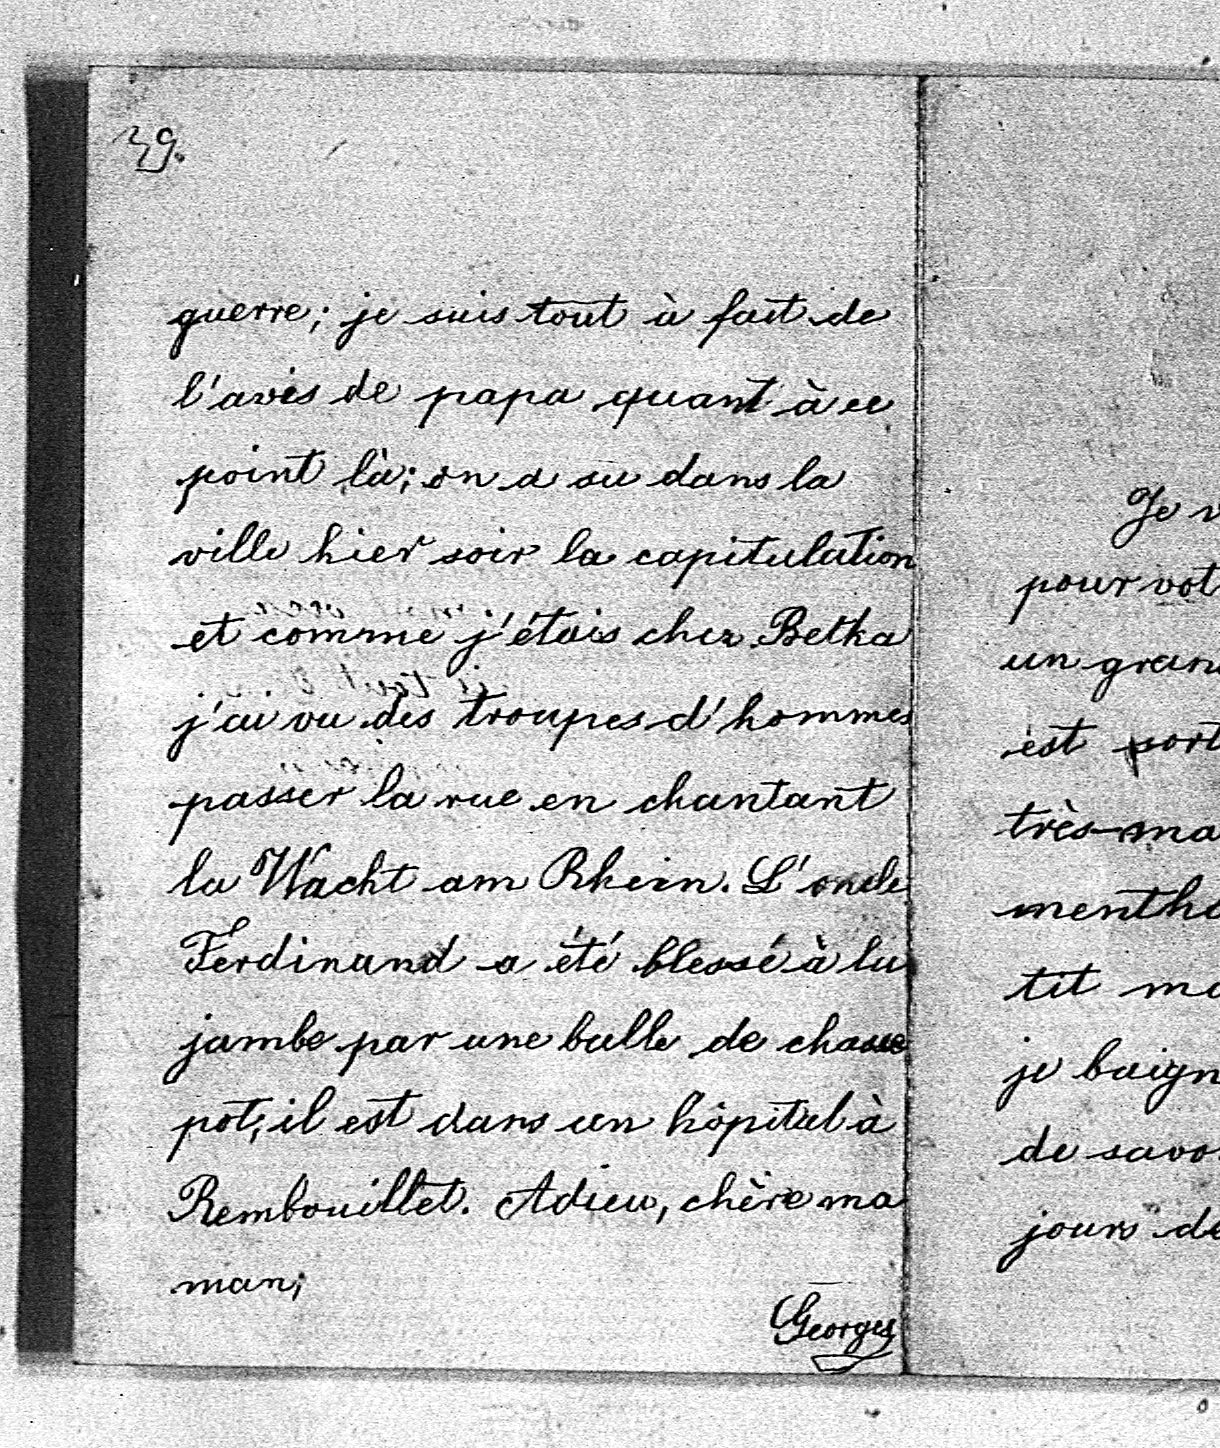 39.
guerre; je suis tout à fait de
l'avis de papa quant à ce
point là; on a su dans la
ville hier soir la capitulation
et comme j'étais chez Betka
j'ai vu des troupes d'hommes
passer la rue en chantant
la Wacht am Rhein. L'oncle
Ferdinand a été blessé à la
jambe par une balle de chasse
pot; il est dans un hôpital à
Rembouillet. Adieu, chère ma
man;
Georges
Je v
pour vot
un gran
est sort
très-ma
mentho
tit ma
je baign
de savo
jours de